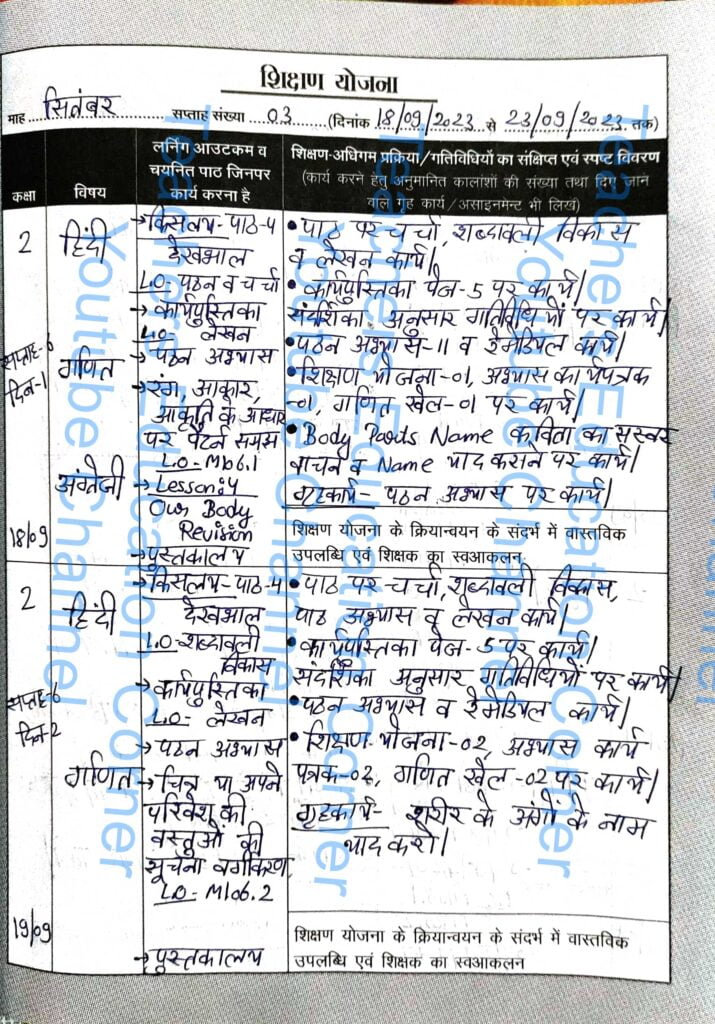 शिक्षण योजना
माह....सितंबर......सप्ताह संख्या....03......(दिनांक 18/09/2023 से 23/09/2023 तक)
कक्षा
विषय
लर्निंग आउटकम व
चयनित पाठ जिनपर
कार्य करना है
शिक्षण-अधिगम प्रक्रिया/गतिविधियों का संक्षिप्त एवं स्पष्ट विवरण
(कार्य करने हेतु अनुमानित कालांशों की संख्या तथा दिए जाने
वाले गृह कार्य/असाइनमेंट भी लिखें)
2
सप्ताह-6
दिन-1
18/09
हिंदी
गणित
अंग्रेजी
→किसलय-पाठ-4
देखभाल
LO-पठन व चर्चा
→कार्यपुस्तिका
LO- लेखन
→ पठन अभ्यास
→रंग, आकार,
आकृति के आधार
पर पैटर्न समझ
LO-M106.1
→Lesson:4
Our Body
Revision
→पुस्तकालय
•पाठ पर चर्चा, शब्दावली विकास
व लेखन कार्य।
•कार्यपुस्तिका पेज-5 पर कार्य।
संदर्शिका अनुसार गतिविधियों पर कार्य।
•पठन अभ्यास-11 व रेमेडियल कार्य।
•शिक्षण योजना-01, अभ्यास कार्यपत्रक
-01, गणित खेल-01 पर कार्य।
•Body Parts Name कविता का सस्वर
वाचन व Name याद कराने पर कार्य।
गृहकार्य- पठन अभ्यास पर कार्य।
शिक्षण योजना के क्रियान्वयन के संदर्भ में वास्तविक
उपलब्धि एवं शिक्षक का स्वआकलन
2
सप्ताह-6
दिन-2
19/09
हिंदी
गणित
→किसलय-पाठ-4
देखभाल
LO-शब्दावली
विकास
→कार्यपुस्तिका
LO- लेखन
→पठन अभ्यास
→चित्र या अपने
परिवेश की
वस्तुओं की
सूचना वर्गीकरण
LO- M106.2
→पुस्तकालय
•पाठ पर चर्चा, शब्दावली विकास,
पाठ अभ्यास व लेखन कार्य।
•कार्यपुस्तिका पेज-5 पर कार्य।
संदर्शिका अनुसार गतिविधियों पर कार्य।
•पठन अभ्यास व रेमेडियल कार्य।
•शिक्षण-योजना-02, अभ्यास कार्य
पत्रक-02, गणित खेल-02 पर कार्य।
गृहकार्य- शरीर के अंगों के नाम
याद करो।
शिक्षण योजना के क्रियान्वयन के संदर्भ में वास्तविक
उपलब्धि एवं शिक्षक का स्वआकलन
Teachers Education Corner
Youtube Channel
Teachers Education Corner
Youtube Channel
Teachers Education Corner